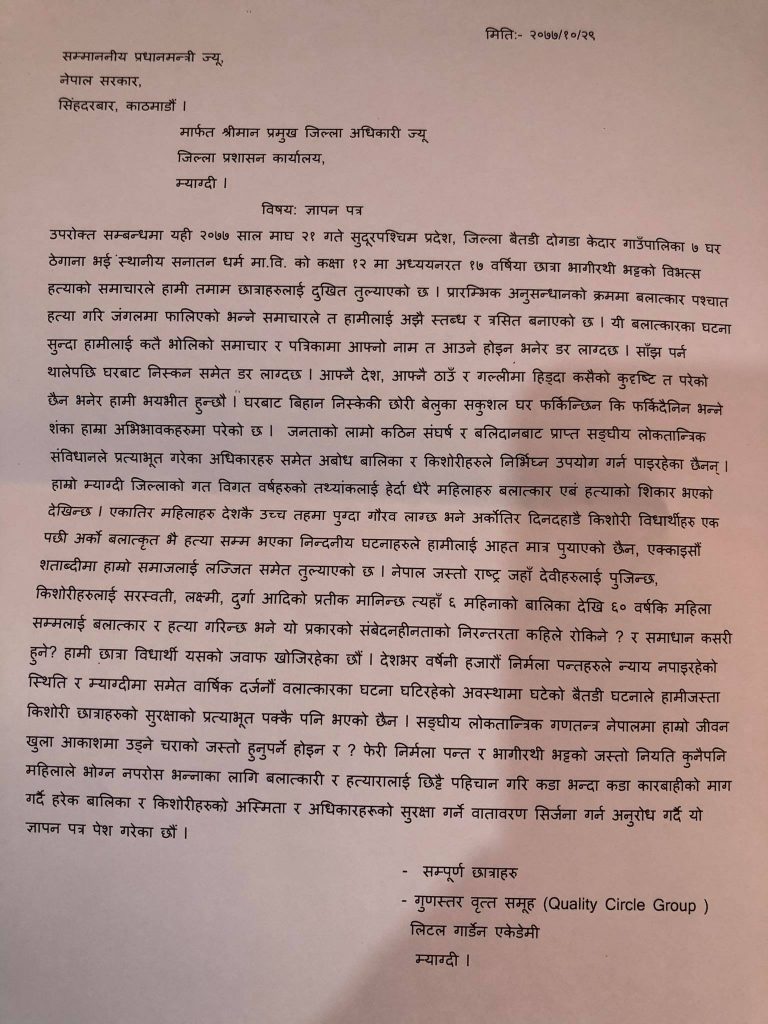 मिति:- २०७७/१०/२९
सम्माननीय प्रधानमन्त्री ज्यू,
नेपाल सरकार,
सिंहदरबार, काठमाडौं ।
मार्फत श्रीमान प्रमुख जिल्ला अधिकारी ज्यू
जिल्ला प्रशासन कार्यालय,
म्याग्दी ।
विषय: ज्ञापन पत्र
उपरोक्त सम्बन्धमा यही २०७७ साल माघ २१ गते सुदूरपश्चिम प्रदेश, जिल्ला बैतडी दोगडा केदार गाउँपालिका ७ घर
ठेगाना भई स्थानीय सनातन धर्म मा.वि. को कक्षा १२ मा अध्ययनरत १७ वर्षिया छात्रा भागीरथी भट्टको विभत्स
हत्याको समाचारले हामी तमाम छात्राहरुलाई दुखित तुल्याएको छ । प्रारम्भिक अनुसन्धानको क्रममा बलात्कार पश्चात
हत्या गरि जंगलमा फालिएको भन्ने समाचारले त हामीलाई अझै स्तब्ध र त्रसित बनाएको छ । यी बलात्कारका घटना
सुन्दा हामीलाई कतै भोलिको समाचार र पत्रिकामा आफ्नो नाम त आउने होइन भनेर डर लाग्दछ । साँझ पर्न
थालेपछि घरबाट निस्कन समेत डर लाग्दछ । आफ्नै देश, आफ्नै ठाउँ र गल्लीमा हिड्दा कसैको कुदृष्टि त परेको
छैन भनेर हामी भयभीत हुन्छौ । घरबाट बिहान निस्केकी छोरी बेलुका सकुशल घर फर्किन्छिन कि फर्किदैनिन भन्ने
शंका हाम्रा अभिभावकहरुमा परेको छ । जनताको लामो कठिन संघर्ष र बलिदानबाट प्राप्त सङ्घीय लोकतान्त्रिक
संविधानले प्रत्याभूत गरेका अधिकारहरु समेत अबोध बालिका र किशोरीहरुले निर्भिघ्न उपयोग गर्न पाइरहेका छैनन् ।
हाम्रो म्याग्दी जिल्लाको गत विगत वर्षहरुको तथ्यांकलाई हेर्दा धेरै महिलाहरु बलात्कार एबं हत्याको शिकार भएको
देखिन्छ । एकातिर महिलाहरु देशकै उच्च तहमा पुग्दा गौरव लाग्छ भने अर्कोतिर दिनदहाडै किशोरी विधार्थीहरु एक
पछी अर्को बलात्कृत भै हत्या सम्म भएका निन्दनीय घटनाहरुले हामीलाई आहत मात्र पुयाएको छैन, एक्काइसौं
शताब्दीमा हाम्रो समाजलाई लज्जित समेत तुल्याएको छ । नेपाल जस्तो राष्ट्र जहाँ देवीहरुलाई पुजिन्छ,
किशोरीहरुलाई सरस्वती, लक्ष्मी, दुर्गा आदिको प्रतीक मानिन्छ त्यहाँ ६ महिनाको बालिका देखि ६० वर्षकि महिला
सम्मलाई बलात्कार र हत्या गरिन्छ भने यो प्रकारको संबेदनहीनताको निरन्तरता कहिले रोकिने ? र समाधान कसरी
हुने? हामी छात्रा विधार्थी यसको जवाफ खोजिरहेका छौं । देशभर वर्षेनी हजारौं निर्मला पन्तहरुले न्याय नपाइरहेको
स्थिति र म्याग्दीमा समेत वार्षिक दर्जनौं वलात्कारका घटना घटिरहेको अवस्थामा घटेको बैतडी घटनाले हामीजस्ता
किशोरी छात्राहरुको सुरक्षाको प्रत्याभूत पक्कै पनि भएको छैन । सङ्घीय लोकतान्त्रिक गणतन्त्र नेपालमा हाम्रो जीवन
खुला आकाशमा उड्ने चराको जस्तो हुनुपर्ने होइन र ? फेरी निर्मला पन्त र भागीरथी भट्टको जस्तो नियति कुनैपनि
महिलाले भोग्न नपरोस भन्नाका लागि बलात्कारी र हत्यारालाई छिट्टै पहिचान गरि कडा भन्दा कडा कारबाहीको माग
गर्दै हरेक बालिका र किशोरीहरुको अस्मिता र अधिकारहरूको सुरक्षा गर्ने वातावरण सिर्जना गर्न अनुरोध गर्दै यो
ज्ञापन पत्र पेश गरेका छौं ।
- सम्पूर्ण छात्राहरु
- गुणस्तर वृत्त समूह (Quality Circle Group )
लिटल गार्डेन एकेडेमी
म्याग्दी ।